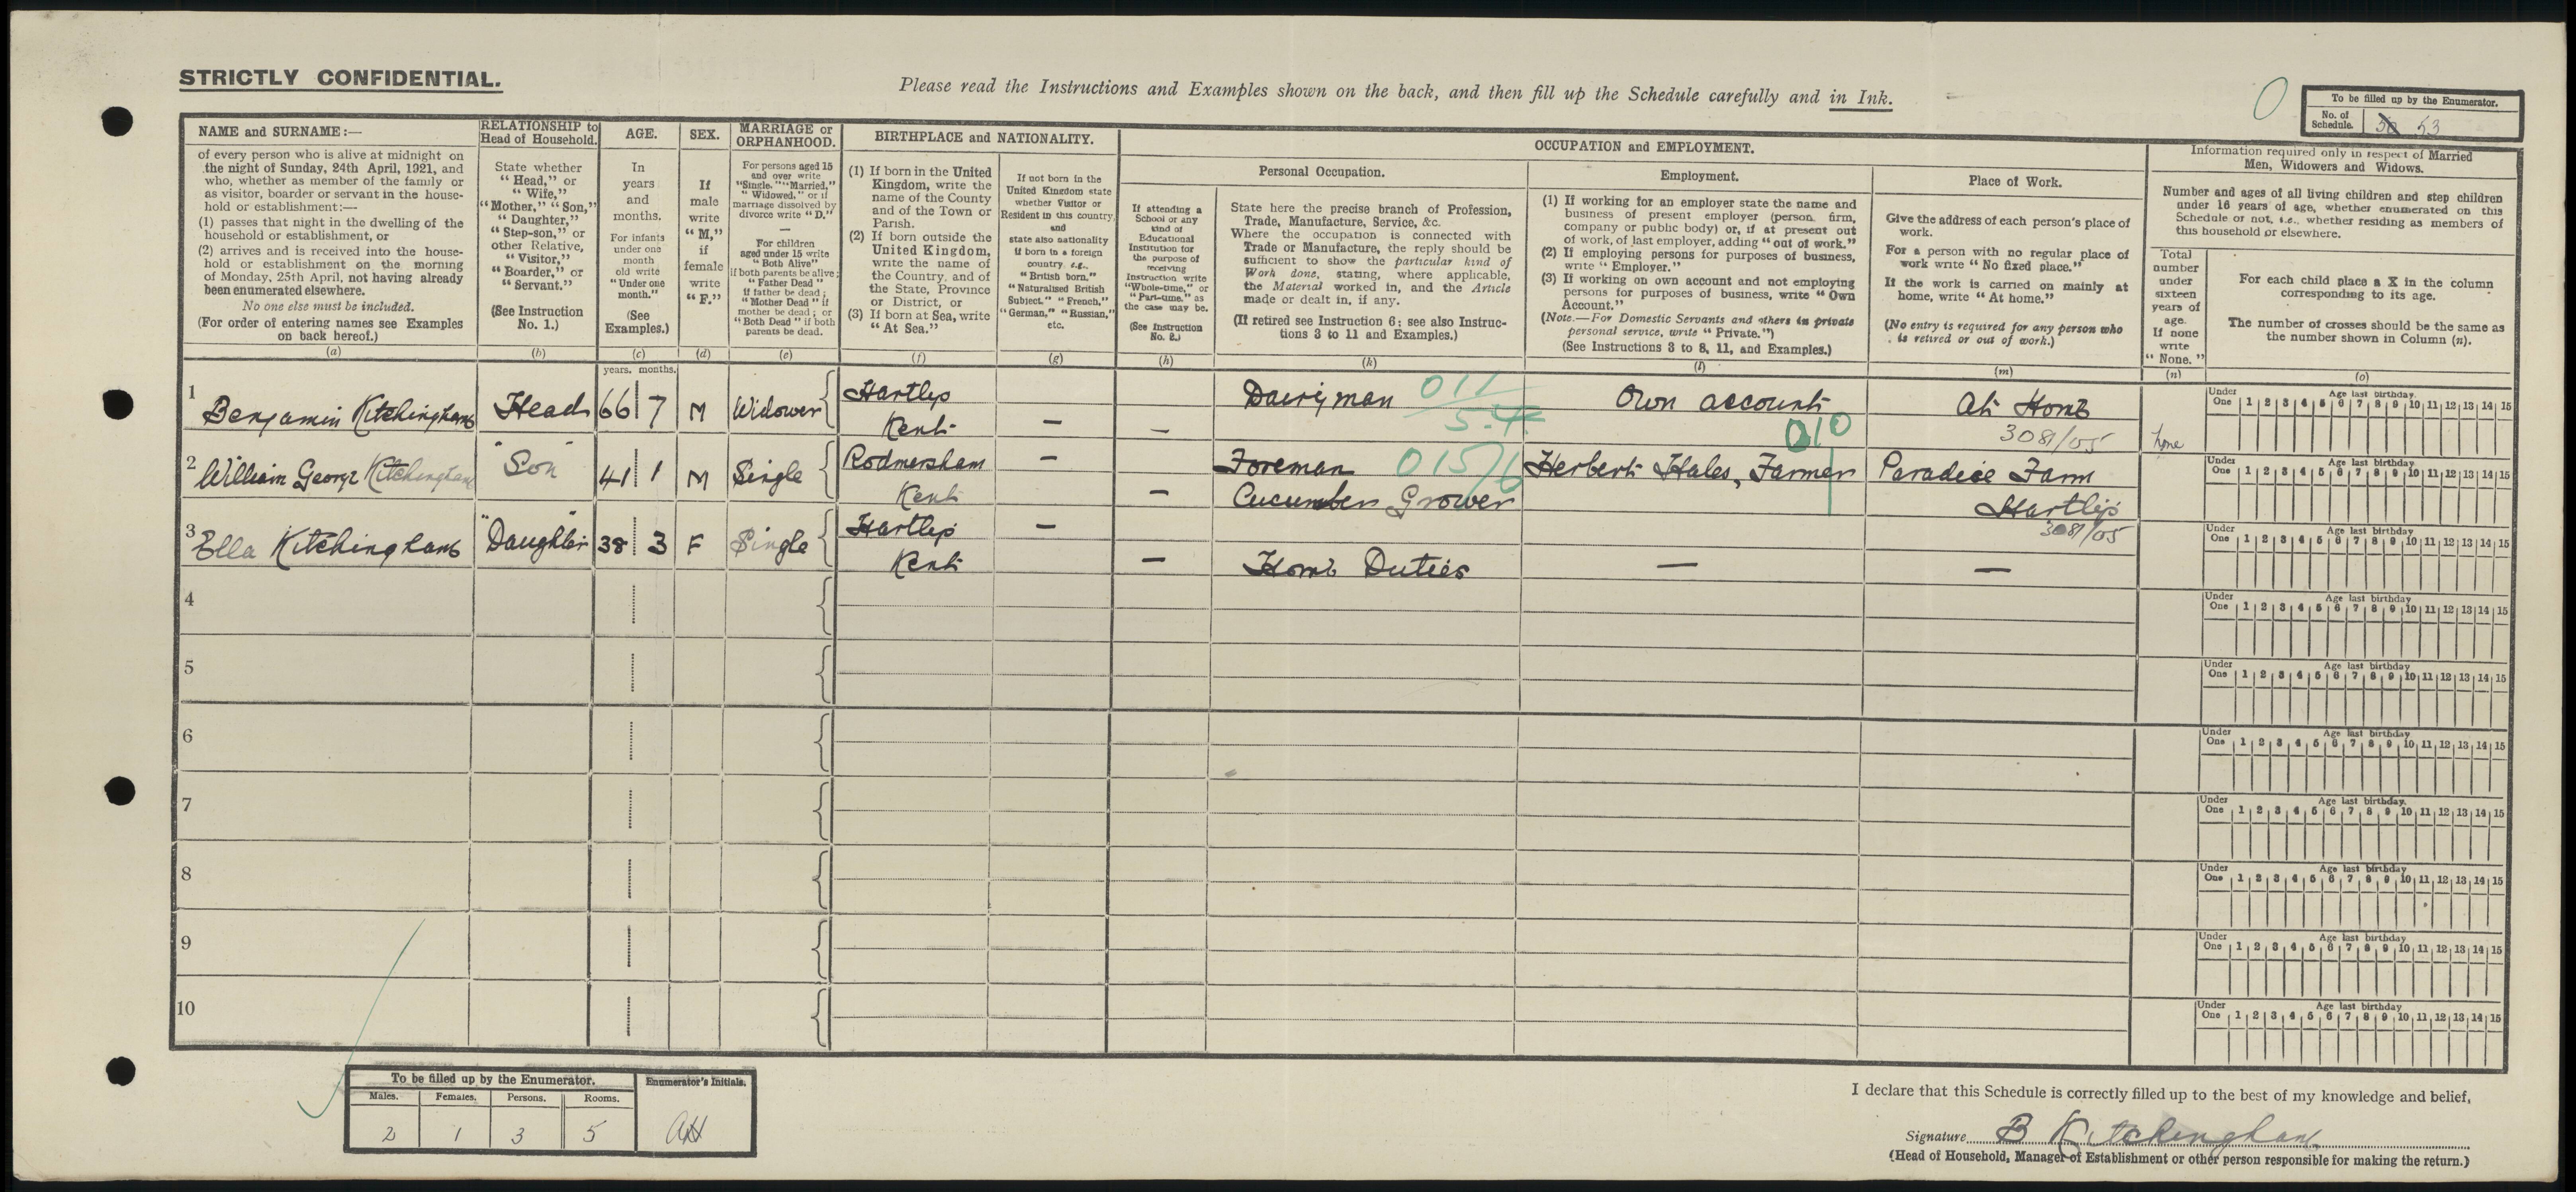 STRICTLY CONFIDENTIAL.
Please read the Instructions and Examples shown on the back, and then fill up the Schedule carefully and in Ink.
To be filled up by the Enumerator.
No. of Schedule. 50 53
NAME and SURNAME:—
of every person who is alive at midnight on
the night of Sunday, 24th April, 1921, and
who, whether as member of the family or
as visitor, boarder or servant in the house-
hold or establishment:—
(1) passes that night in the dwelling of the
household or establishment, or
(2) arrives and is received into the house-
hold or establishment on the morning
of Monday, 25th April, not having already
been enumerated elsewhere.
No one else must be included.
(For order of entering names see Examples
on back hereof.)
(a)
RELATIONSHIP to
Head of Household.
State whether
"Head," or
"Wife,"
"Mother," "Son,"
"Daughter,"
"Step-son," or
other Relative,
"Visitor,"
"Boarder," or
"Servant."
(See Instruction
No. 1.)
(b)
AGE.
In
years
and
months.
For infants
under one
month
old write
"Under one
month."
(See
Examples.)
(c)
SEX.
If
male
write
"M,"
if
female
write
"F."
(d)
MARRIAGE or
ORPHANHOOD.
For persons aged 15
and over write
"Single," "Married,"
"Widowed," or if
marriage dissolved by
divorce write "D."
—
For children
aged under 15 write
"Both Alive"
if both parents be alive;
"Father Dead"
if father be dead;
"Mother Dead" if
mother be dead; or
"Both Dead" if both
parents be dead.
(e)
BIRTHPLACE and NATIONALITY.
(1) If born in the United
Kingdom, write the
name of the County
and of the Town or
Parish.
(2) If born outside the
United Kingdom,
write the name of
the Country, and of
the State, Province
or District, or
(3) If born at Sea, write
"At Sea."
(f)
If not born in the
United Kingdom state
whether Visitor or
Resident in this country,
and
state also nationality
if born in a foreign
country e.g.,
"British born,"
"Naturalised British
Subject," "French,"
"German," "Russian,"
etc.
(g)
OCCUPATION and EMPLOYMENT.
If attending a
School or any
kind of
Educational
Institution for
the purpose of
receiving
Instruction write
"Whole-time," or
"Part-time," as
the case may be.
(See Instruction
No. 2.)
(h)
Personal Occupation.
State here the precise branch of Profession,
Trade, Manufacture, Service, &c.
Where the occupation is connected with
Trade or Manufacture, the reply should be
sufficient to show the particular kind of
Work done, stating, where applicable,
the Material worked in, and the Article
made or dealt in, if any.
(If retired see Instruction 6; see also Instruc-
tions 3 to 11 and Examples.)
(k)
Employment.
(1) If working for an employer state the name and
business of present employer (person, firm,
company or public body) or, if at present out
of work, of last employer, adding "out of work."
(2) If employing persons for purposes of business,
write "Employer."
(3) If working on own account and not employing
persons for purposes of business, write "Own
Account."
(Note.—For Domestic Servants and others in private
personal service, write "Private.")
(See Instructions 3 to 8, 11, and Examples.)
(l)
Place of Work.
Give the address of each person's place of
work.
For a person with no regular place of
work write "No fixed place."
If the work is carried on mainly at
home, write "At home."
(No entry is required for any person who
is retired or out of work.)
(m)
Information required only in respect of Married
Men, Widowers and Widows.
Number and ages of all living children and step children
under 16 years of age, whether enumerated on this
Schedule or not, i.e., whether residing as members of
this household or elsewhere.
Total
number
under
sixteen
years of
age.
If none
write
"None."
(n)
For each child place a X in the column
corresponding to its age.
The number of crosses should be the same as
the number shown in Column (n).
(o)
years. months.
1 Benjamin Kitchingham Head 66 7 M Widower Hartlip Kent — — Dairyman 011 Own account At Home 3081/05 none
Under One Age last birthday. 1 2 3 4 5 6 7 8 9 10 11 12 13 14 15
2 William George Kitchingham "Son" 41 1 M Single Rodmersham Kent — — Foreman Cucumber Grower 015/6 Herbert Hales, Farmer 010 Paradise Farm Hartlip 3081/05
Under One Age last birthday 1 2 3 4 5 6 7 8 9 10 11 12 13 14 15
3 Ella Kitchingham "Daughter" 38 3 F Single Hartlip Kent — — Home Duties — —
Under One Age last birthday 1 2 3 4 5 6 7 8 9 10 11 12 13 14 15
4
Under One Age last birthday 1 2 3 4 5 6 7 8 9 10 11 12 13 14 15
5
Under One Age last birthday 1 2 3 4 5 6 7 8 9 10 11 12 13 14 15
6
Under One Age last birthday 1 2 3 4 5 6 7 8 9 10 11 12 13 14 15
7
Under One Age last birthday. 1 2 3 4 5 6 7 8 9 10 11 12 13 14 15
8
Under One Age last birthday 1 2 3 4 5 6 7 8 9 10 11 12 13 14 15
9
Under One Age last birthday 1 2 3 4 5 6 7 8 9 10 11 12 13 14 15
10
Under One Age last birthday 1 2 3 4 5 6 7 8 9 10 11 12 13 14 15
To be filled up by the Enumerator.
Males. Females. Persons. Rooms.
2 1 3 5
Enumerator's Initials.
I declare that this Schedule is correctly filled up to the best of my knowledge and belief,
Signature B Kitchingham
(Head of Household, Manager of Establishment or other person responsible for making the return.)